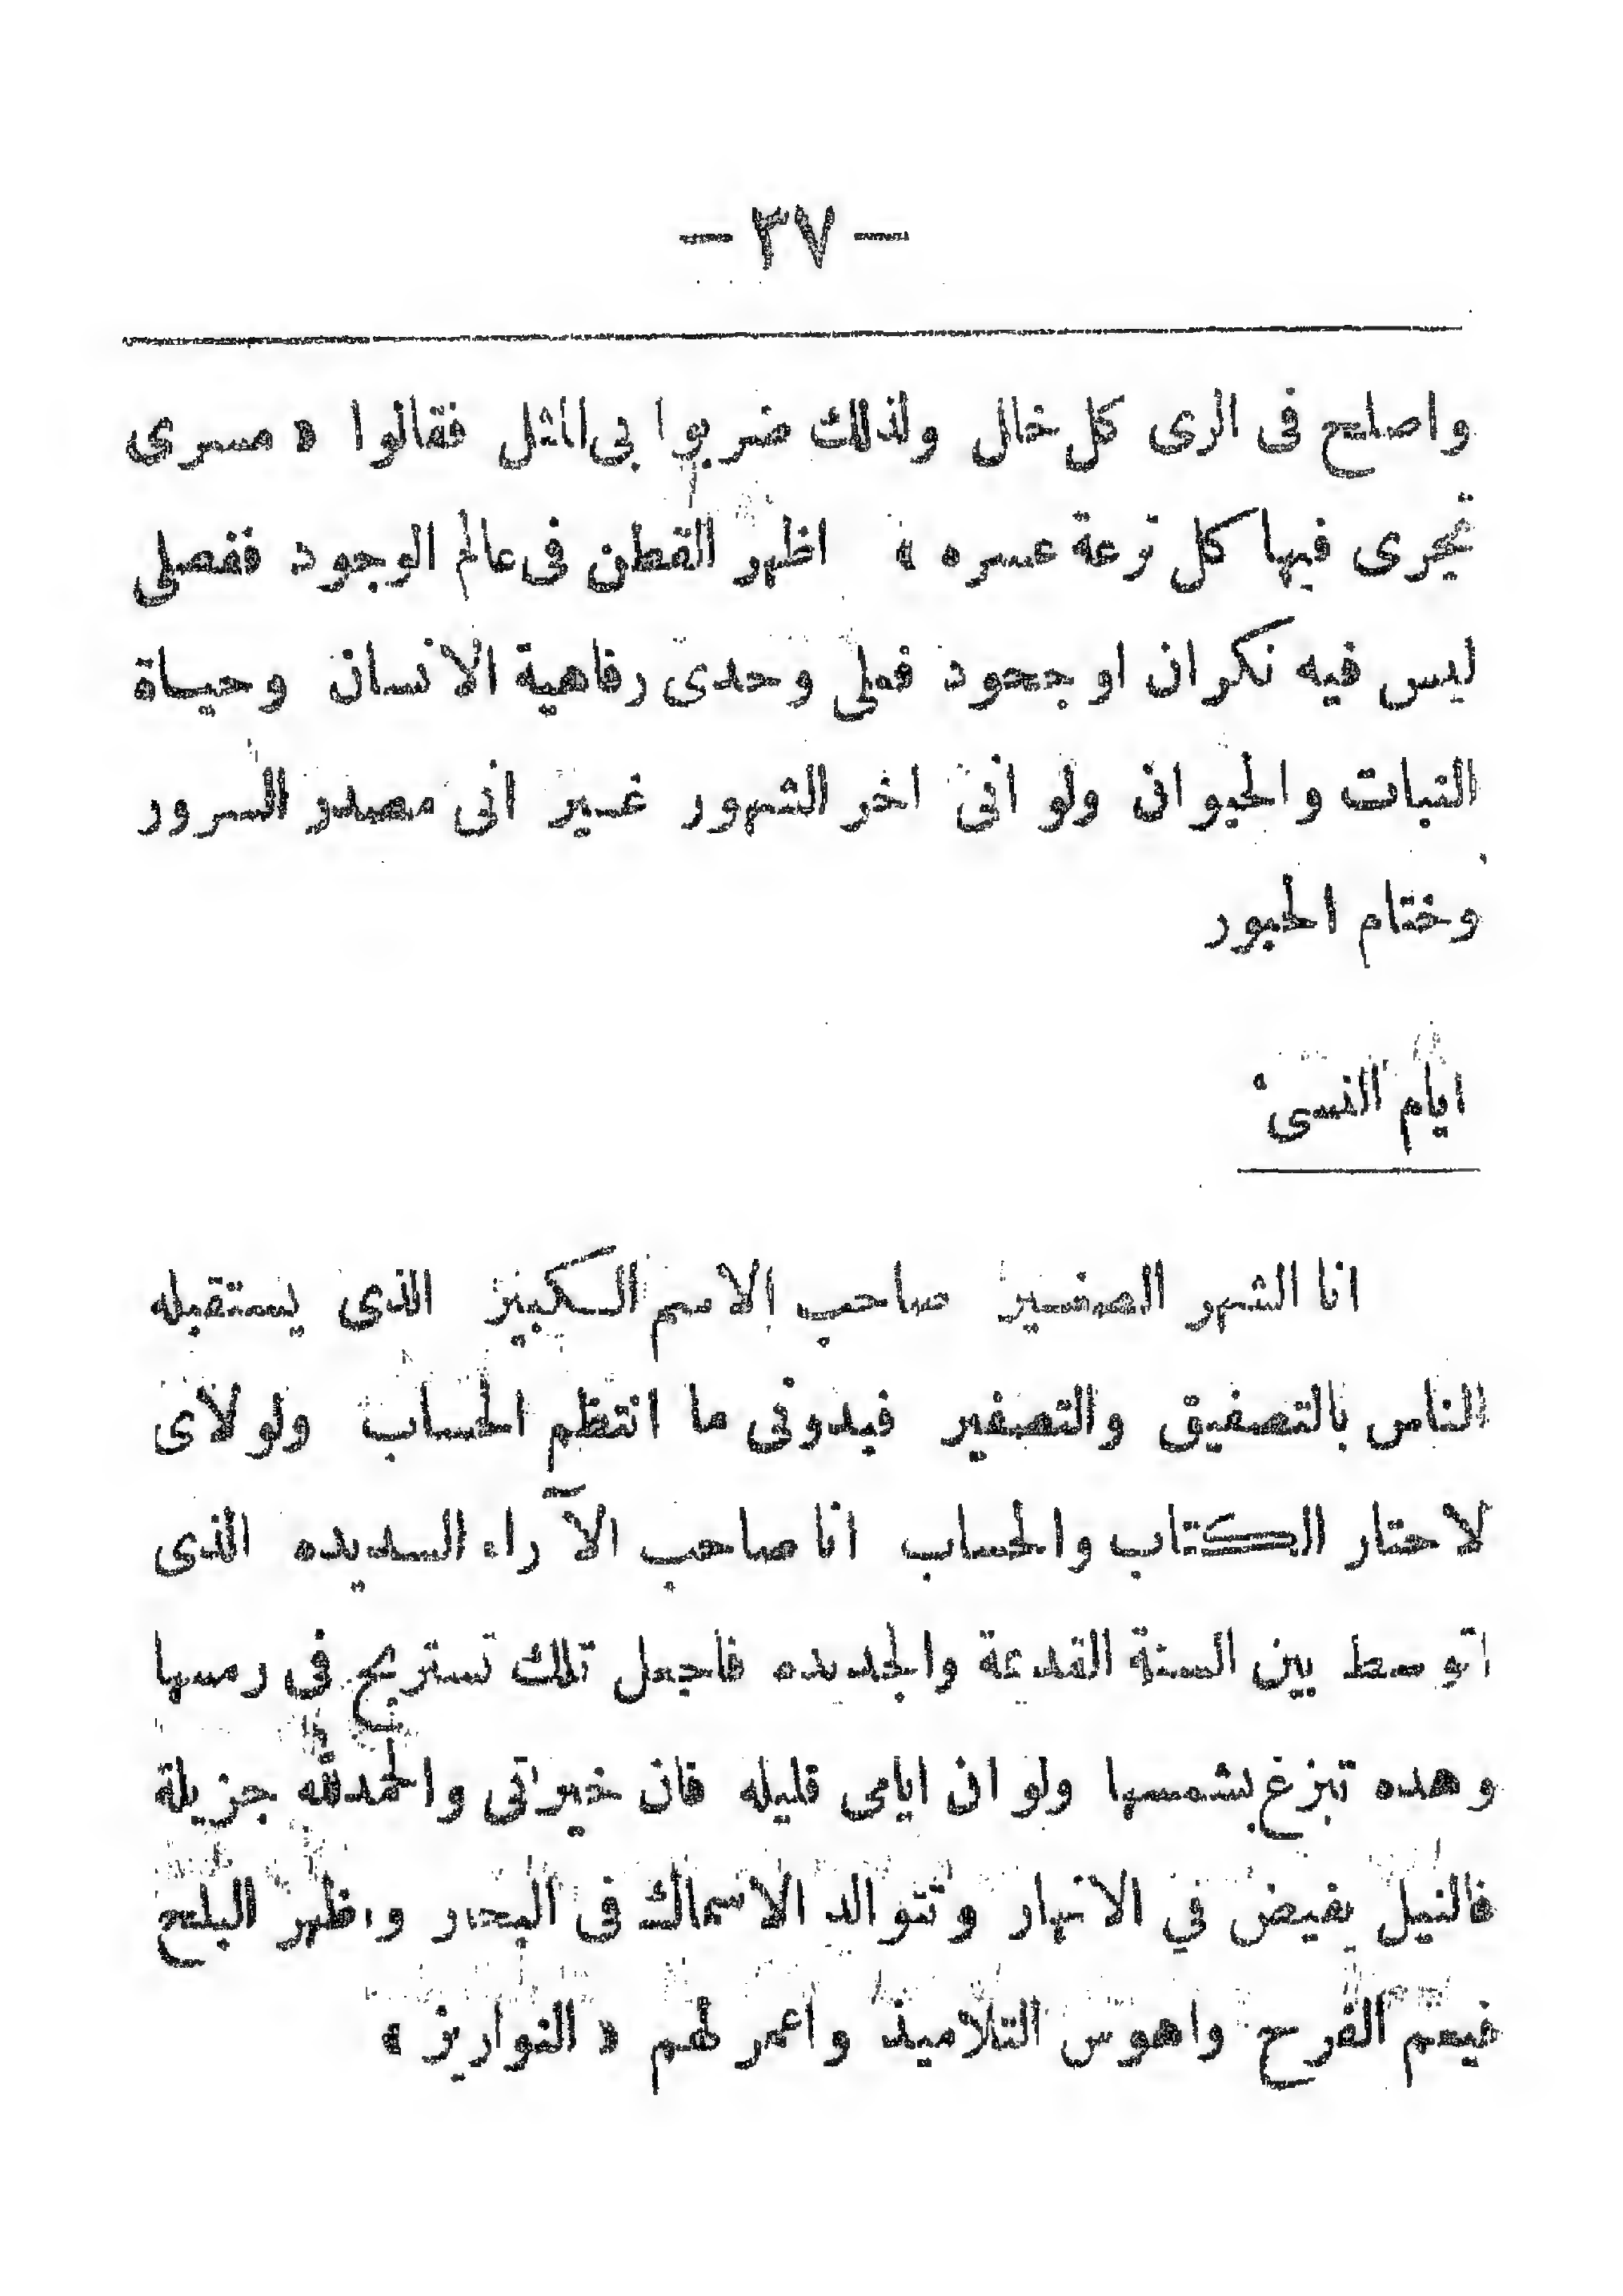 — ٣٧ —
واصلح فى الرى كل خلل ولذلك ضربوا بى المثل فقالوا « مسرى
تجرى فيها كل ترعة عسره » اظهر القطن فى عالم الوجود ففصلى
ليس فيه نكران او جحود فعلى وحدى رفاهية الانسان وحياة
النبات والحيوان ولو انى اخر الشهور غير انى مصدر السرور
وختام الحبور
ايام النسىء
انا الشهر الصغير صاحب الاسم الكبير الذى يستقبله
الناس بالتصفيق والتصفير فبدونى ما انتظم الحساب ولولاى
لاحتار الكتاب والحساب انا صاحب الآراء السديده الذى
اتوسط بين السنة القديمة والجديده فاجعل تلك تستريح فى رمسها
وهده تبزغ بشمسها ولو ان ايامى قليله فان خيراتى والحمدلله جزيلة
فالنيل يفيض في الانهار وتتوالد الاسماك فى البحار ويظهر البلح
فيعم الفرح واهوس التلاميذ واعمر لهم « النواريز »